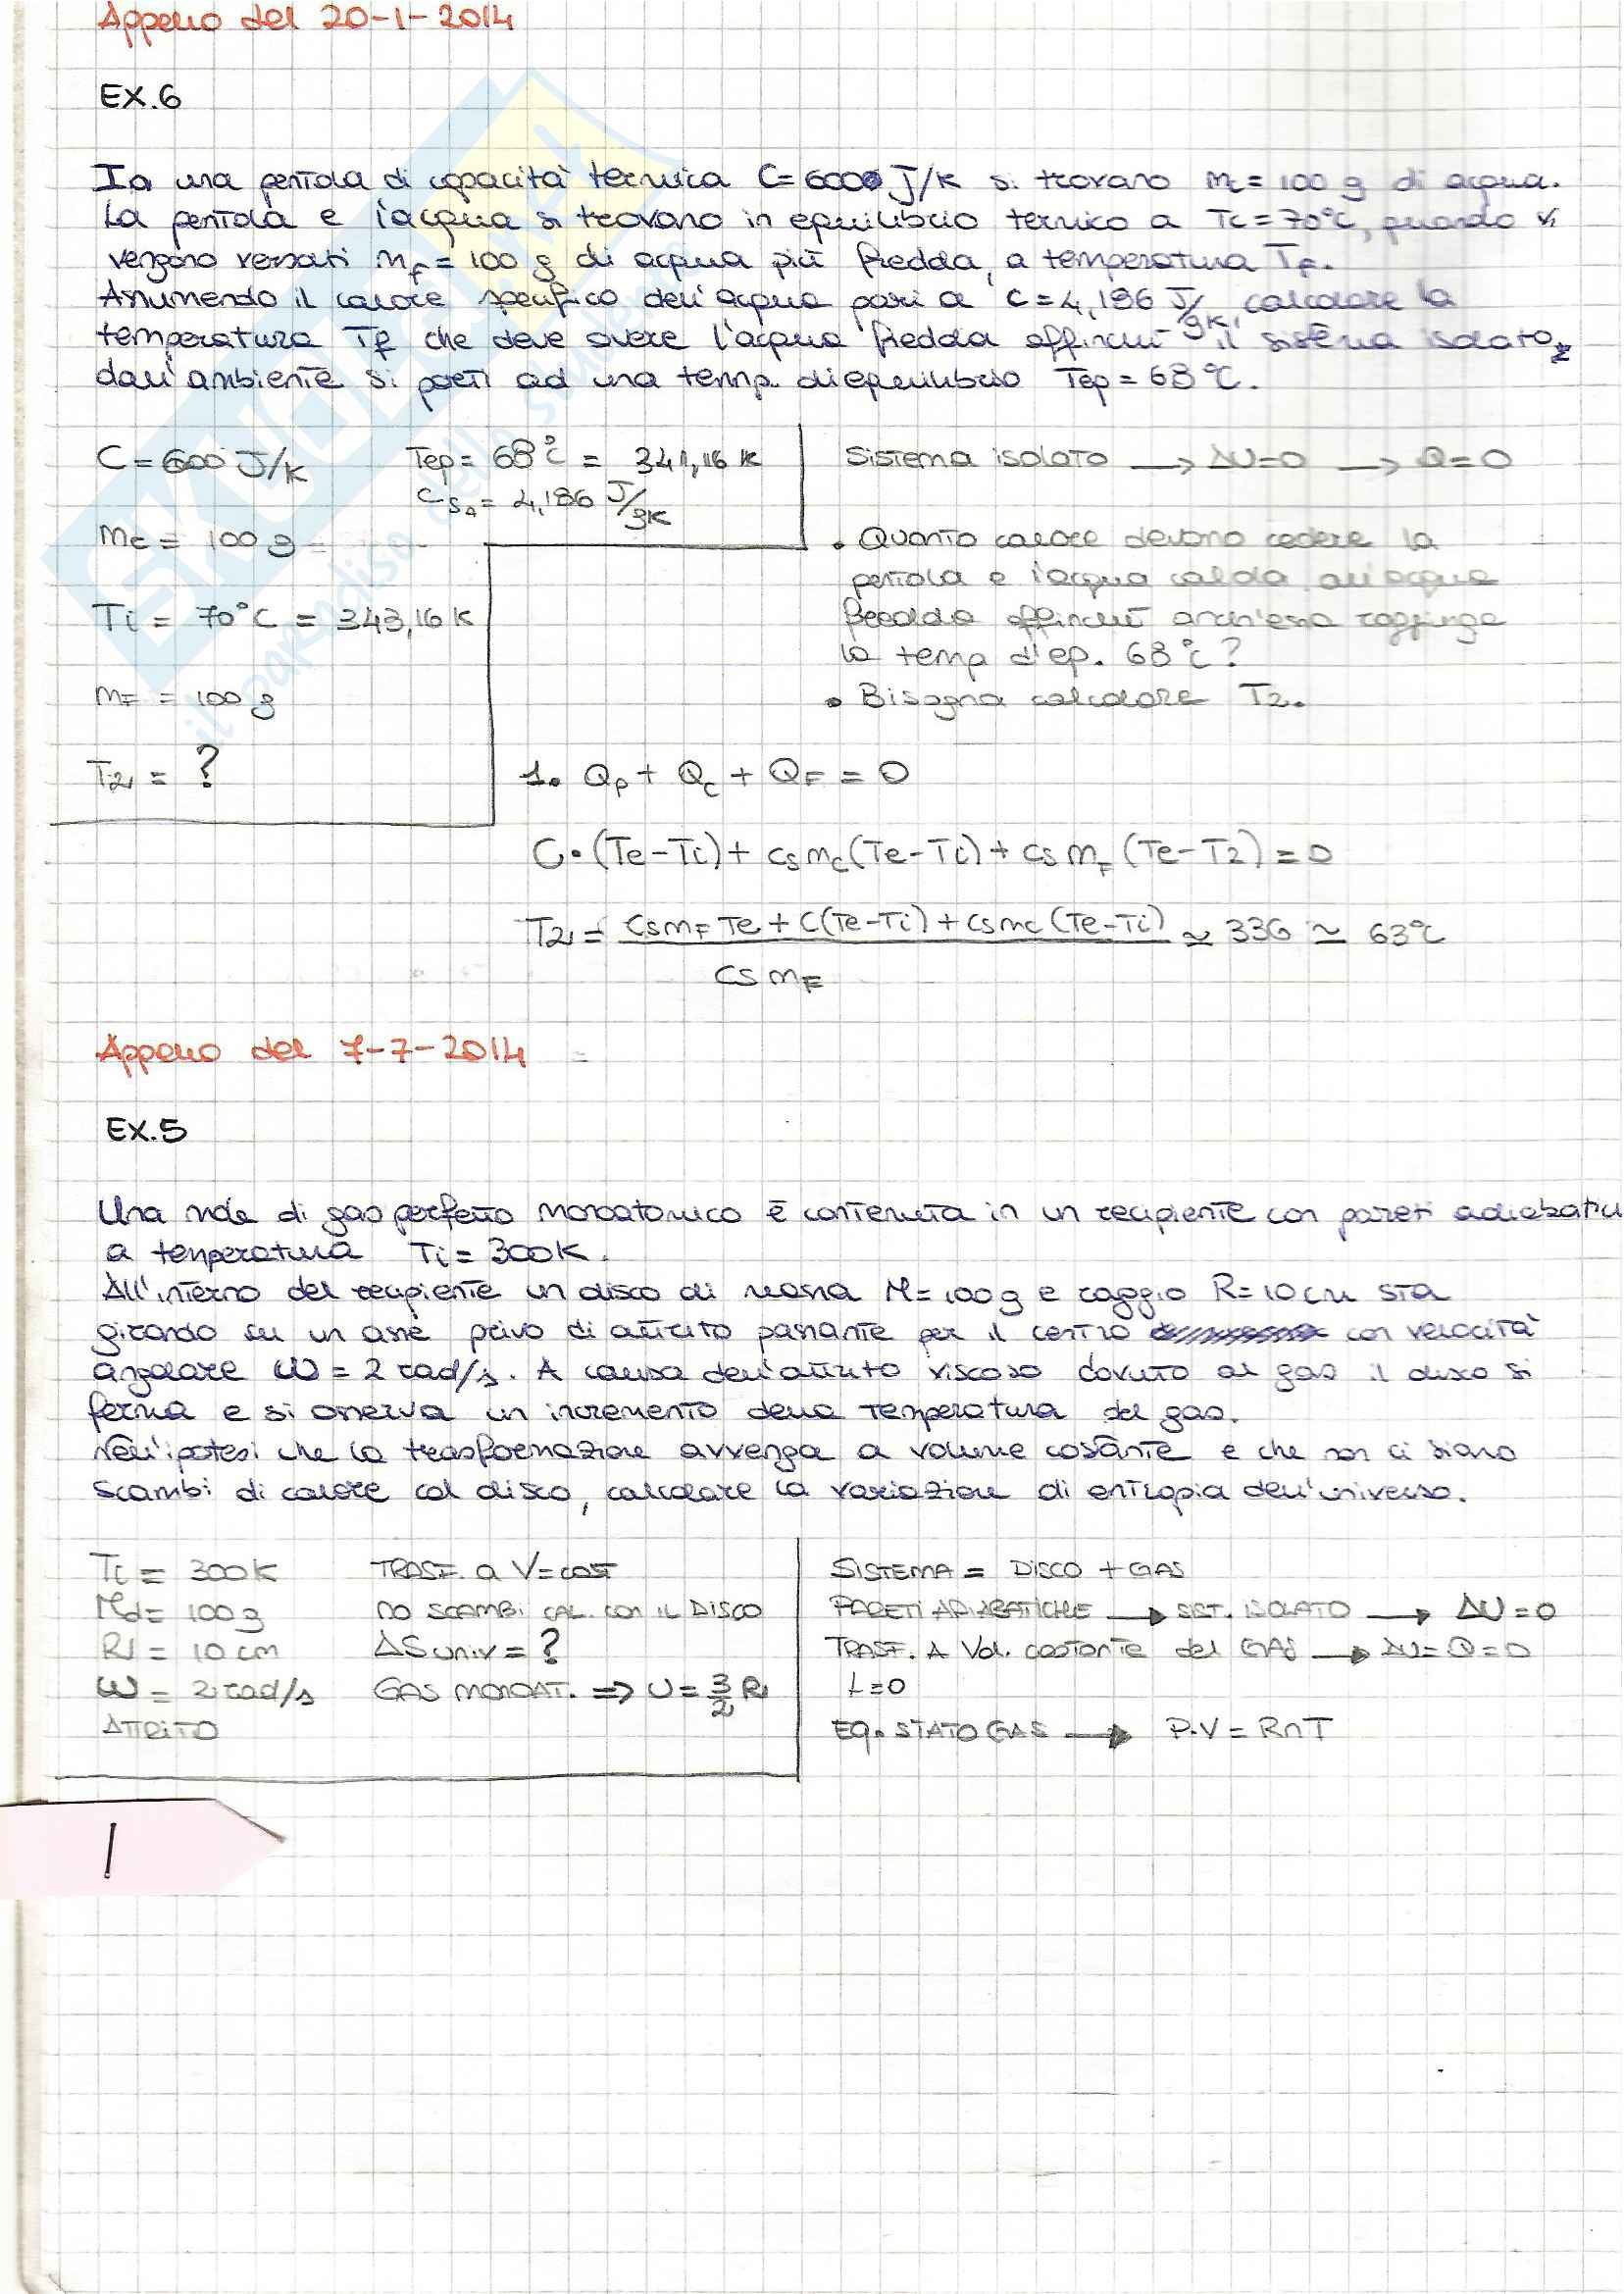 Appello del 20-1-2014
EX.6
In una pentola di capacità termica C=6000 J/K si trovano mc = 100 g di acqua.
La pentola e l'acqua si trovano in equilibrio termico a Ti = 70°C, quando vi
vengono versati mF = 100 g di acqua più fredda, a temperatura TF.
Assumendo il calore specifico dell'acqua pari a c = 4,186 J/gK, calcolare la
temperatura Tf che deve avere l'acqua fredda affinché il sistema isolato
dall'ambiente si porti ad una temp. di equilibrio Tep = 68°C.
C = 600 J/K
Tep = 68°C = 341,16 K
Sistema isolato → ΔU=0 → Q=0
CSA = 4,186 J/gK
mc = 100 g
• Quanto calore devono cedere la
pentola e l'acqua calda all'acqua
Ti = 70°C = 343,16 K
fredda affinché anch'essa raggiunga
la temp d'eq. 68°C?
mF = 100 g
• Bisogna calcolare T2.
T2 = ?
1. QP + QC + QF = 0
C·(Te-Ti) + cs mc (Te-Ti) + cs mF (Te-T2) = 0
T2 = cs mF Te + C(Te-Ti) + cs mc (Te-Ti) / cs mF ≃ 336 ≃ 63°C
Appello del 7-7-2014
EX.5
Una mole di gas perfetto monoatomico è contenuta in un recipiente con pareti adiabatic
a temperatura Ti = 300K.
All'interno del recipiente un disco di massa M = 100 g e raggio R = 10 cm sta
girando su un asse privo di attrito passante per il centro con velocità
angolare ω = 2 rad/s. A causa dell'attrito viscoso dovuto al gas il disco si
ferma e si osserva un incremento della temperatura del gas.
Nell'ipotesi che la trasformazione avvenga a volume costante e che non ci siano
scambi di calore col disco, calcolare la variazione di entropia dell'universo.
Ti = 300K
TRASF. a V=cost
SISTEMA = DISCO + GAS
Md = 100 g
NO SCAMBI CAL. CON IL DISCO
PARETI ADIABATICHE → SIST. ISOLATO → ΔU = 0
R = 10 cm
ΔSuniv = ?
TRASF. A Vol. COSTANTE del GAS → ΔU = Q = 0
ω = 2 rad/s
GAS MONOAT. ⇒ U = 3/2 R
L = 0
ATTRITO
EQ. STATO GAS → P·V = RnT
1
SKUOLA
il paradiso dello studente